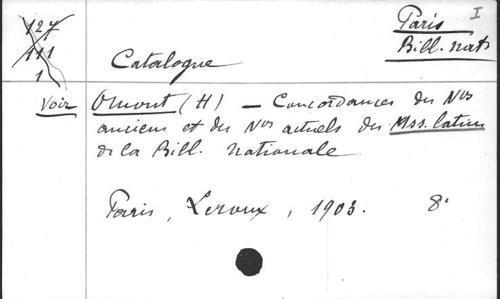 I
127
111
1
Paris
Bibl. natle
Catalogue
Voir Omont (H) — Concordances des Nos
anciens et des Nos actuels des Mss. latins
de la Bibl. Nationale.
Paris, Leroux, 1903. 8°